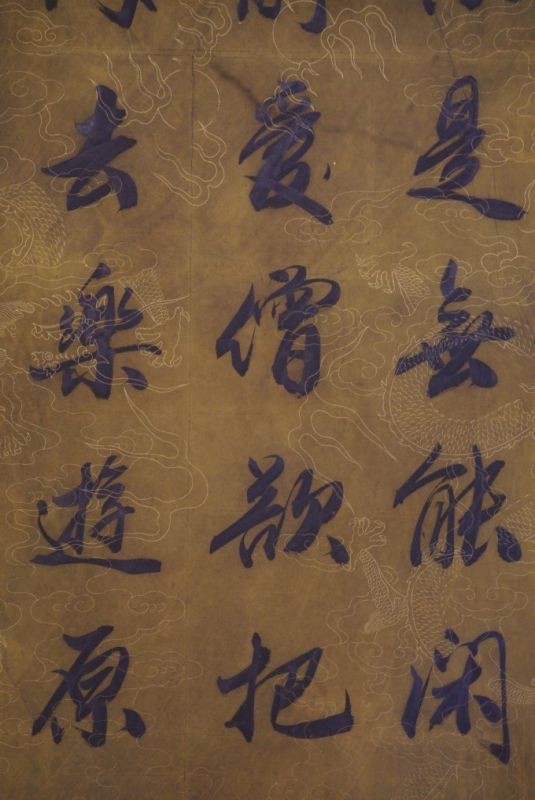 是無能閑
愛僧欲把
去樂遊原